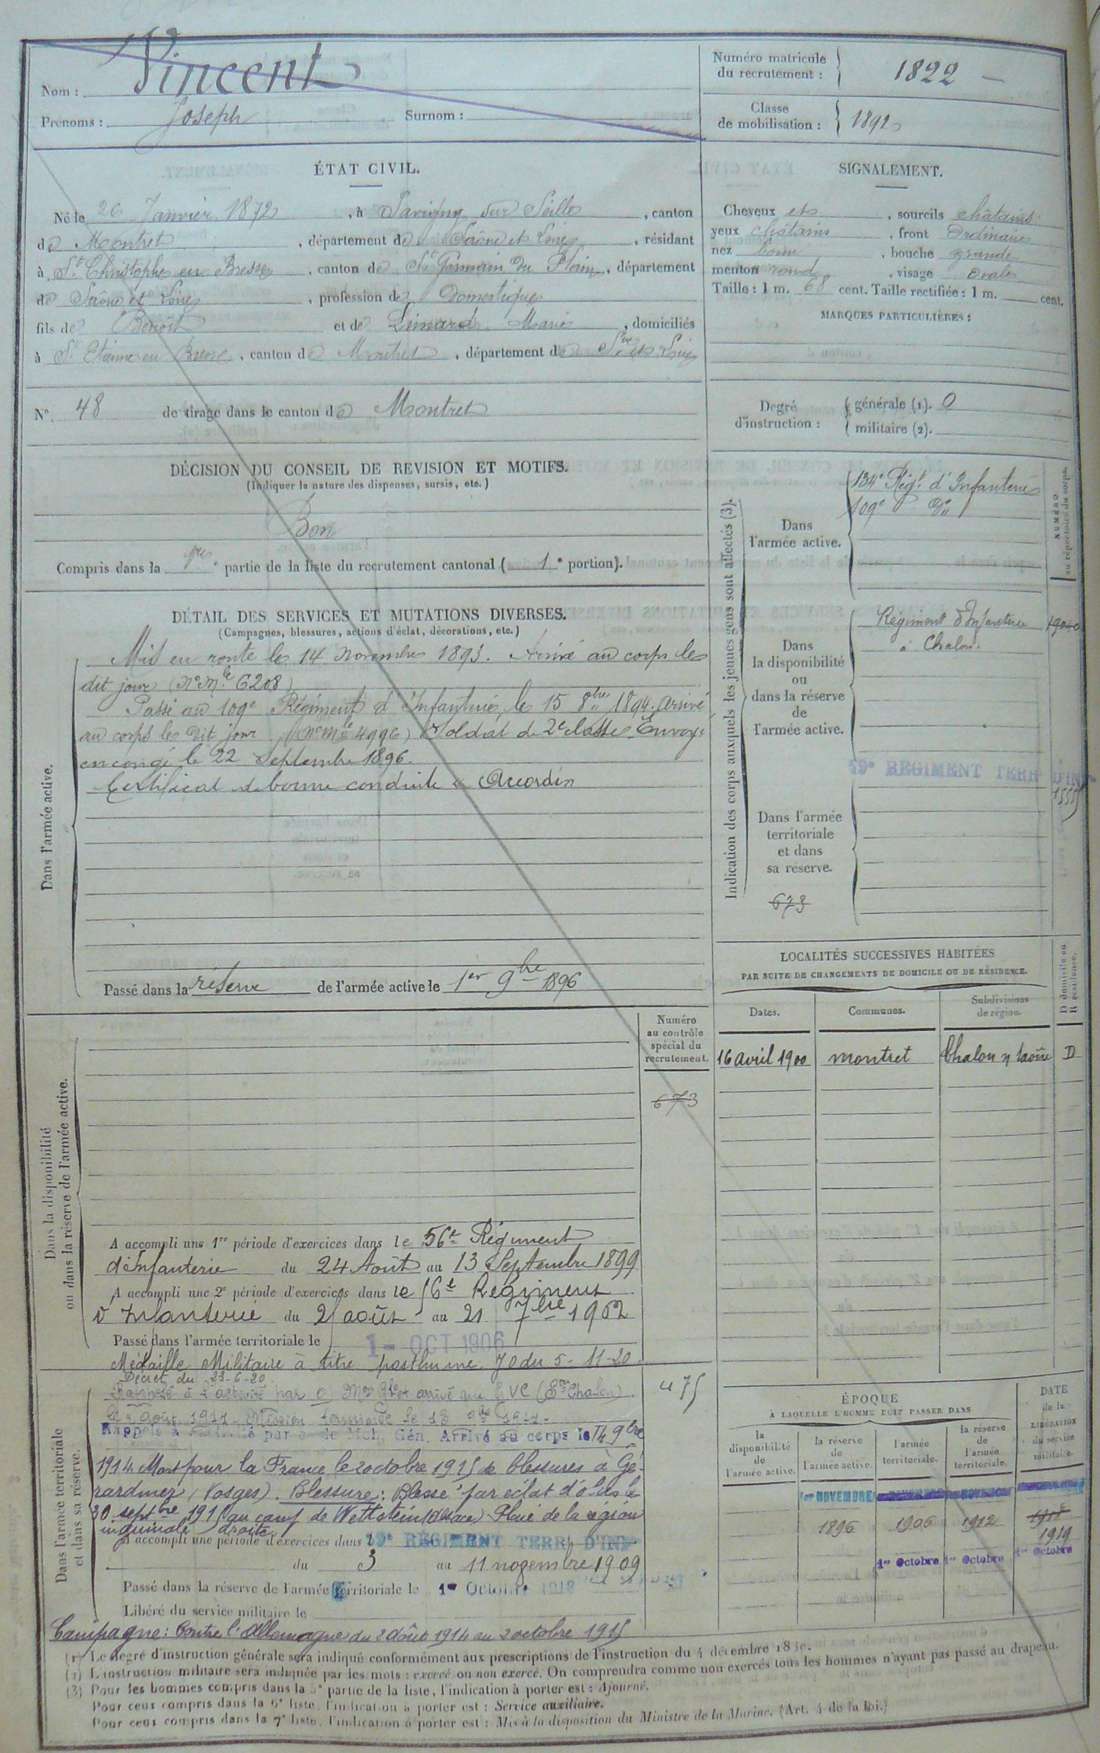 Nom : Vincent
Prénoms : Joseph Surnom :
Numéro matricule du recrutement : 1822
Classe de mobilisation : 1892
ÉTAT CIVIL.
Né le 26 Janvier 1872, à Savigny sur Seille, canton
de Montret, département de Saône et Loire, résidant
à St Christophe en Bresse, canton de St Germain du Plain, département
de Saône et Loire, profession de Domestique
fils de Benoît et de Marie, domiciliés
à St Etienne en Bresse, canton de Montret, département de Sne et Loire
N° 48 de tirage dans le canton de Montret
SIGNALEMENT.
Cheveux et , sourcils châtains
yeux châtains, front Ordinaire
nez , bouche grande
menton rond, visage Ovale
Taille : 1 m. 68 cent. Taille rectifiée : 1 m. cent.
MARQUES PARTICULIÈRES :
Degré d'instruction : générale (1). 0
militaire (2).
DÉCISION DU CONSEIL DE REVISION ET MOTIFS.
(Indiquer la nature des dispenses, sursis, etc.)
Bon
Compris dans la 1re partie de la liste du recrutement cantonal ( 1e portion).
DÉTAIL DES SERVICES ET MUTATIONS DIVERSES.
(Campagnes, blessures, actions d'éclat, décorations, etc.)
Dans l'armée active.
Mis en route le 14 Novembre 1893. Arrivé au corps le
dit jour (No Mle 6208)
Passé au 109e Régiment d'Infanterie, le 15 8bre 1894. arrivé
au corps le dit jour (No Mle 4996) Soldat de 2e classe. Envoyé
en congé le 22 Septembre 1896.
Certificat de bonne conduite " Accordé "
Passé dans la réserve de l'armée active le 1er 9bre 1896
Indication des corps auxquels les jeunes gens sont affectés (3).
NUMÉRO au répertoire du corps.
Dans l'armée active.
134e Régt d'Infanterie
109e do
Dans la disponibilité ou dans la réserve de l'armée active.
Régiment d'Infanterie
à Chalon.
Dans l'armée territoriale et dans sa réserve.
59e REGIMENT TERR D'INF
673
LOCALITÉS SUCCESSIVES HABITÉES
PAR SUITE DE CHANGEMENTS DE DOMICILE OU DE RÉSIDENCE.
Dates. Communes. Subdivisions de région. D domicile ou R résidence.
16 avril 1900 montret Chalon s/ Saône D
Numéro au contrôle spécial du recrutement.
673
Dans la disponibilité ou dans la réserve de l'armée active.
A accompli une 1re période d'exercices dans le 56e Régiment
d'Infanterie du 24 Août au 13 Septembre 1899
A accompli une 2e période d'exercices dans le 56e Régiment
d'Infanterie du 25 août au 21 7bre 1902
Passé dans l'armée territoriale le 1 - OCT 1906
Médaille Militaire à titre posthume. JO du 5-11-20
Décret du
Dans l'armée territoriale et dans sa réserve.
475
Rappelé à l'activité par arrivé au G.V.C (Chalon)
août 1914. Mission terminée le 18 1914.
Rappelé à l'activité par de Mob. Gén. Arrivé au corps le 14 9bre
1914 Mort pour la France le 2 octobre 1915 de blessures à Gé-
rardmer, (Vosges). Blessure : Blessé par éclat d'obus le
30 septbre 1915 au camp de Wettstein (Alsace) Plaie de la région
inguinale droite
A accompli une période d'exercices dans 59e REGIMENT TERR D'INF
du 3 au 11 novembre 1909
Passé dans la réserve de l'armée territoriale le 1er Octobre 1912
Libéré du service militaire le
Campagne : Contre l'Allemagne du 2 août 1914 au 2 octobre 1915
ÉPOQUE
A LAQUELLE L'HOMME DOIT PASSER DANS
la disponibilité de l'armée active.
la réserve de l'armée active.
l'armée territoriale.
la réserve de l'armée territoriale.
DATE de la LIBÉRATION du service militaire.
1er NOVEMBRE
1896 1906 1912 1918
1919
1er Octobre 1er Octobre 1er Octobre
(1) Le degré d'instruction générale sera indiqué conformément aux prescriptions de l'instruction du 4 décembre
(2) L'instruction militaire sera indiquée par les mots : exercé ou non exercé. On comprendra comme non exercés tous les hommes n'ayant pas passé au drapeau.
(3) Pour les hommes compris dans la 5e partie de la liste, l'indication à porter est : Ajourné.
Pour ceux compris dans la 6e liste, l'indication à porter est : Service auxiliaire.
Pour ceux compris dans la 7e liste, l'indication à porter est : Mis à la disposition du Ministre de la Marine. (Art. 4 de la loi.)